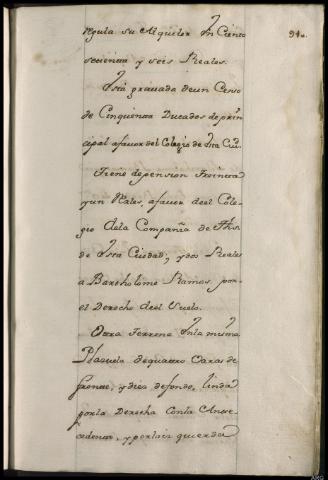 regula su Alquiler En Ciento
sesienta y seis Reales.
Está gravada deun Censo
de Cinquenta Ducados deprin
cipal afavor del Colegio de Esta Ciu.
Tiene depension Treinta
y un Reales, afavor deel Cole-
gio dela Compañia de Jhs.
de Esta Ciudad; y dos Reales
a Bartholome Ramos, por-
el Derecho deel Suelo.
Otra Terrena Enla misma
Plazuela dequatro Varas de
frente, y diez defondo, linda
porla Derecha Conla Ante-
cedente, y porla izquierda